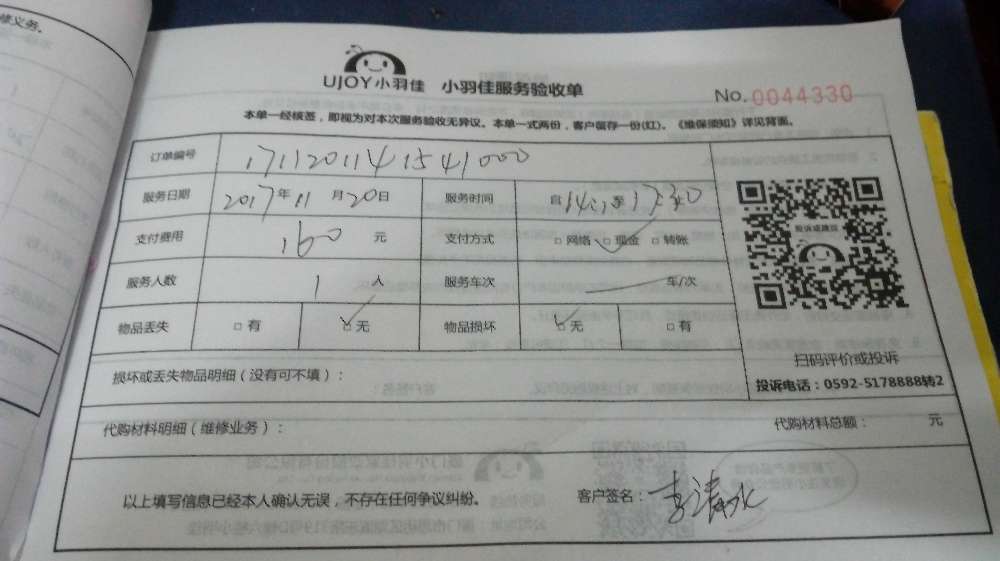 修义务。
UJOY小羽佳 小羽佳服务验收单
No. 0044330
本单一经核签，即视为对本次服务验收无异议。本单一式两份，客户留存一份(红)。《维保须知》详见背面。
订单编号 1711201141541000
服务日期 2017年11月20日 服务时间 自14:1至17:30
支付费用 160元 支付方式 □网络 ☑现金 □转账
服务人数 1人 服务车次 车/次
物品丢失 □有 ☑无 物品损坏 ☑无 □有
投诉或建议
扫码评价或投诉
投诉电话：0592-5178888转2
损坏或丢失物品明细（没有可不填）：
代购材料明细（维修业务）： 代购材料总额： 元
以上填写信息已经本人确认无误，不存在任何争议纠纷。 客户签名：李清水